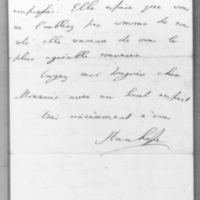 empressée. Elle espère que vous
ne l'oubliez pas comme de son
côté elle conserve de vous le
plus agréable souvenir.
Croyez moi toujours cher
Monsieur avec un haut respect
très sincèrement à vous